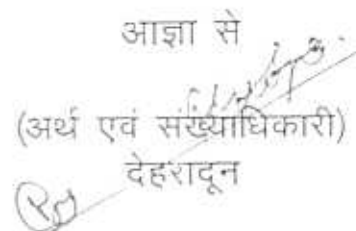 आज्ञा से
(अर्थ एवं संख्याधिकारी)
देहरादून